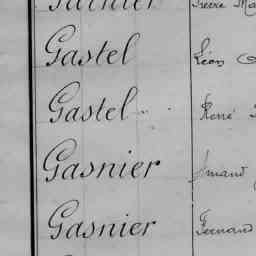 Gastel Léon
Gastel René
Gasnier
Gasnier Fernand